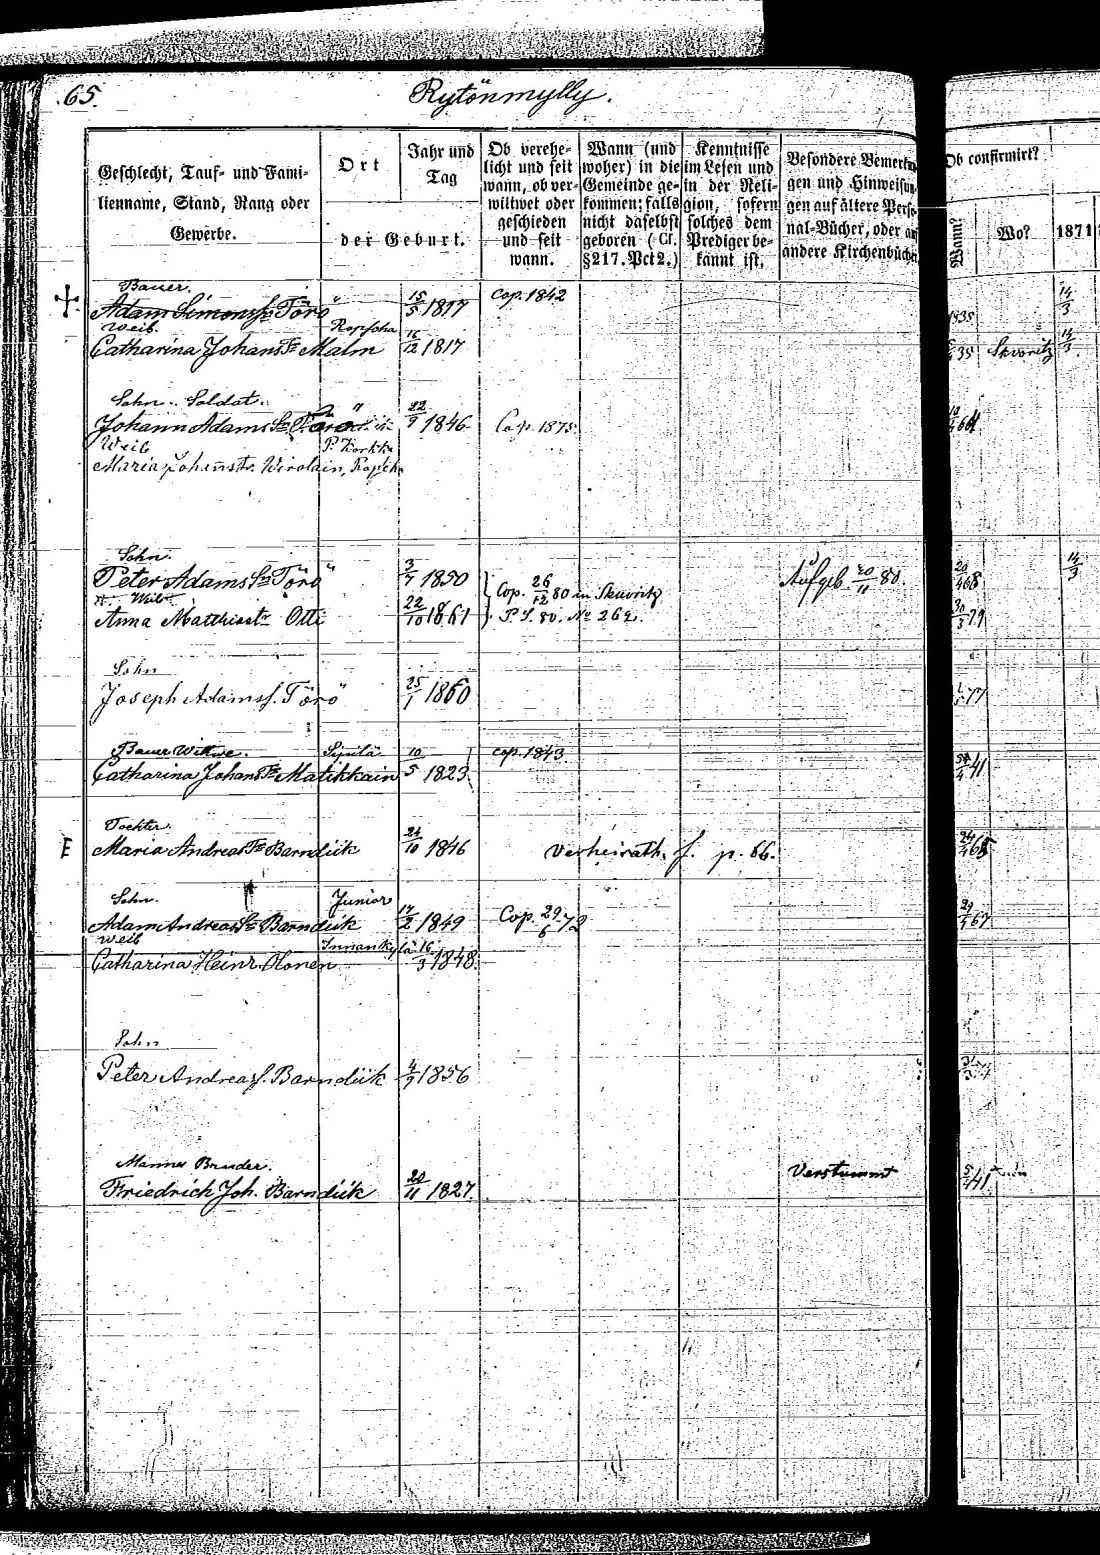 65.
Rytönmylly.
Geschlecht, Tauf- und Fami-
lienname, Stand, Rang oder
Gewerbe.
Ort
Jahr und
Tag
der Geburt.
Ob verehe-
licht und seit
wann, ob ver-
wittwet oder
geschieden
und seit
wann.
Wann (und
woher) in die
Gemeinde ge-
kommen; falls
nicht daselbst
geboren (Cf.
§217. Pct 2.)
Kenntnisse
im Lesen und
in der Reli-
gion, sofern
solches dem
Prediger be-
kannt ist.
Besondere Bemerku
gen und Hinweisun
gen auf ältere Perso
nal-Bücher, oder a
andere Kirchenbüche
Ob confirmirt?
Wann?
Wo?
1871
Bauer.
Adam Simonss. Törö " 15/5 1817 Cop. 1842 1835 14/3
Weib Ropscha
Catharina Johanstr Malm 16/12 1817 35 Skvoritz 14/3
Sohn. Soldat.
Johann Adams Sn Törö " 22/9 1846 Cop. 1875.
Weib
Maria Johanstr. Wirolain, Ropscha
Sohn.
Peter Adams Sn Törö " 3/7 1850 Aufgeb 30/11 80. 20/4 68 14/3
Weib
Cop. 26/12 80 in Skuoritz
Anna Matthiastr Otti 22/10 1861 P. S. 80. No 262. 30/3 79
Sohn
Joseph Adamss. Törö 25/1 1860 77
Bauer Wittwe. 10/5 cop. 1843
Catharina Johans Tr Matikkain 1823 41
Tochter.
Maria Andreas Tr Barndük 24/10 1846 verheirath. s. p. 66. 24/4 65
Sohn. Junior
Adam Andreas Sn Barndük 17/2 1849 Cop. 29/6 72 29/4 67
Weib Innankylä
Catharina Heinr. Olonen 16/3 1848.
Sohn
Peter Andreass. Barndük 4/9 1856
Mannes Bruder.
Friedrich Joh. Barndük 20/11 1827. Verstummt 41